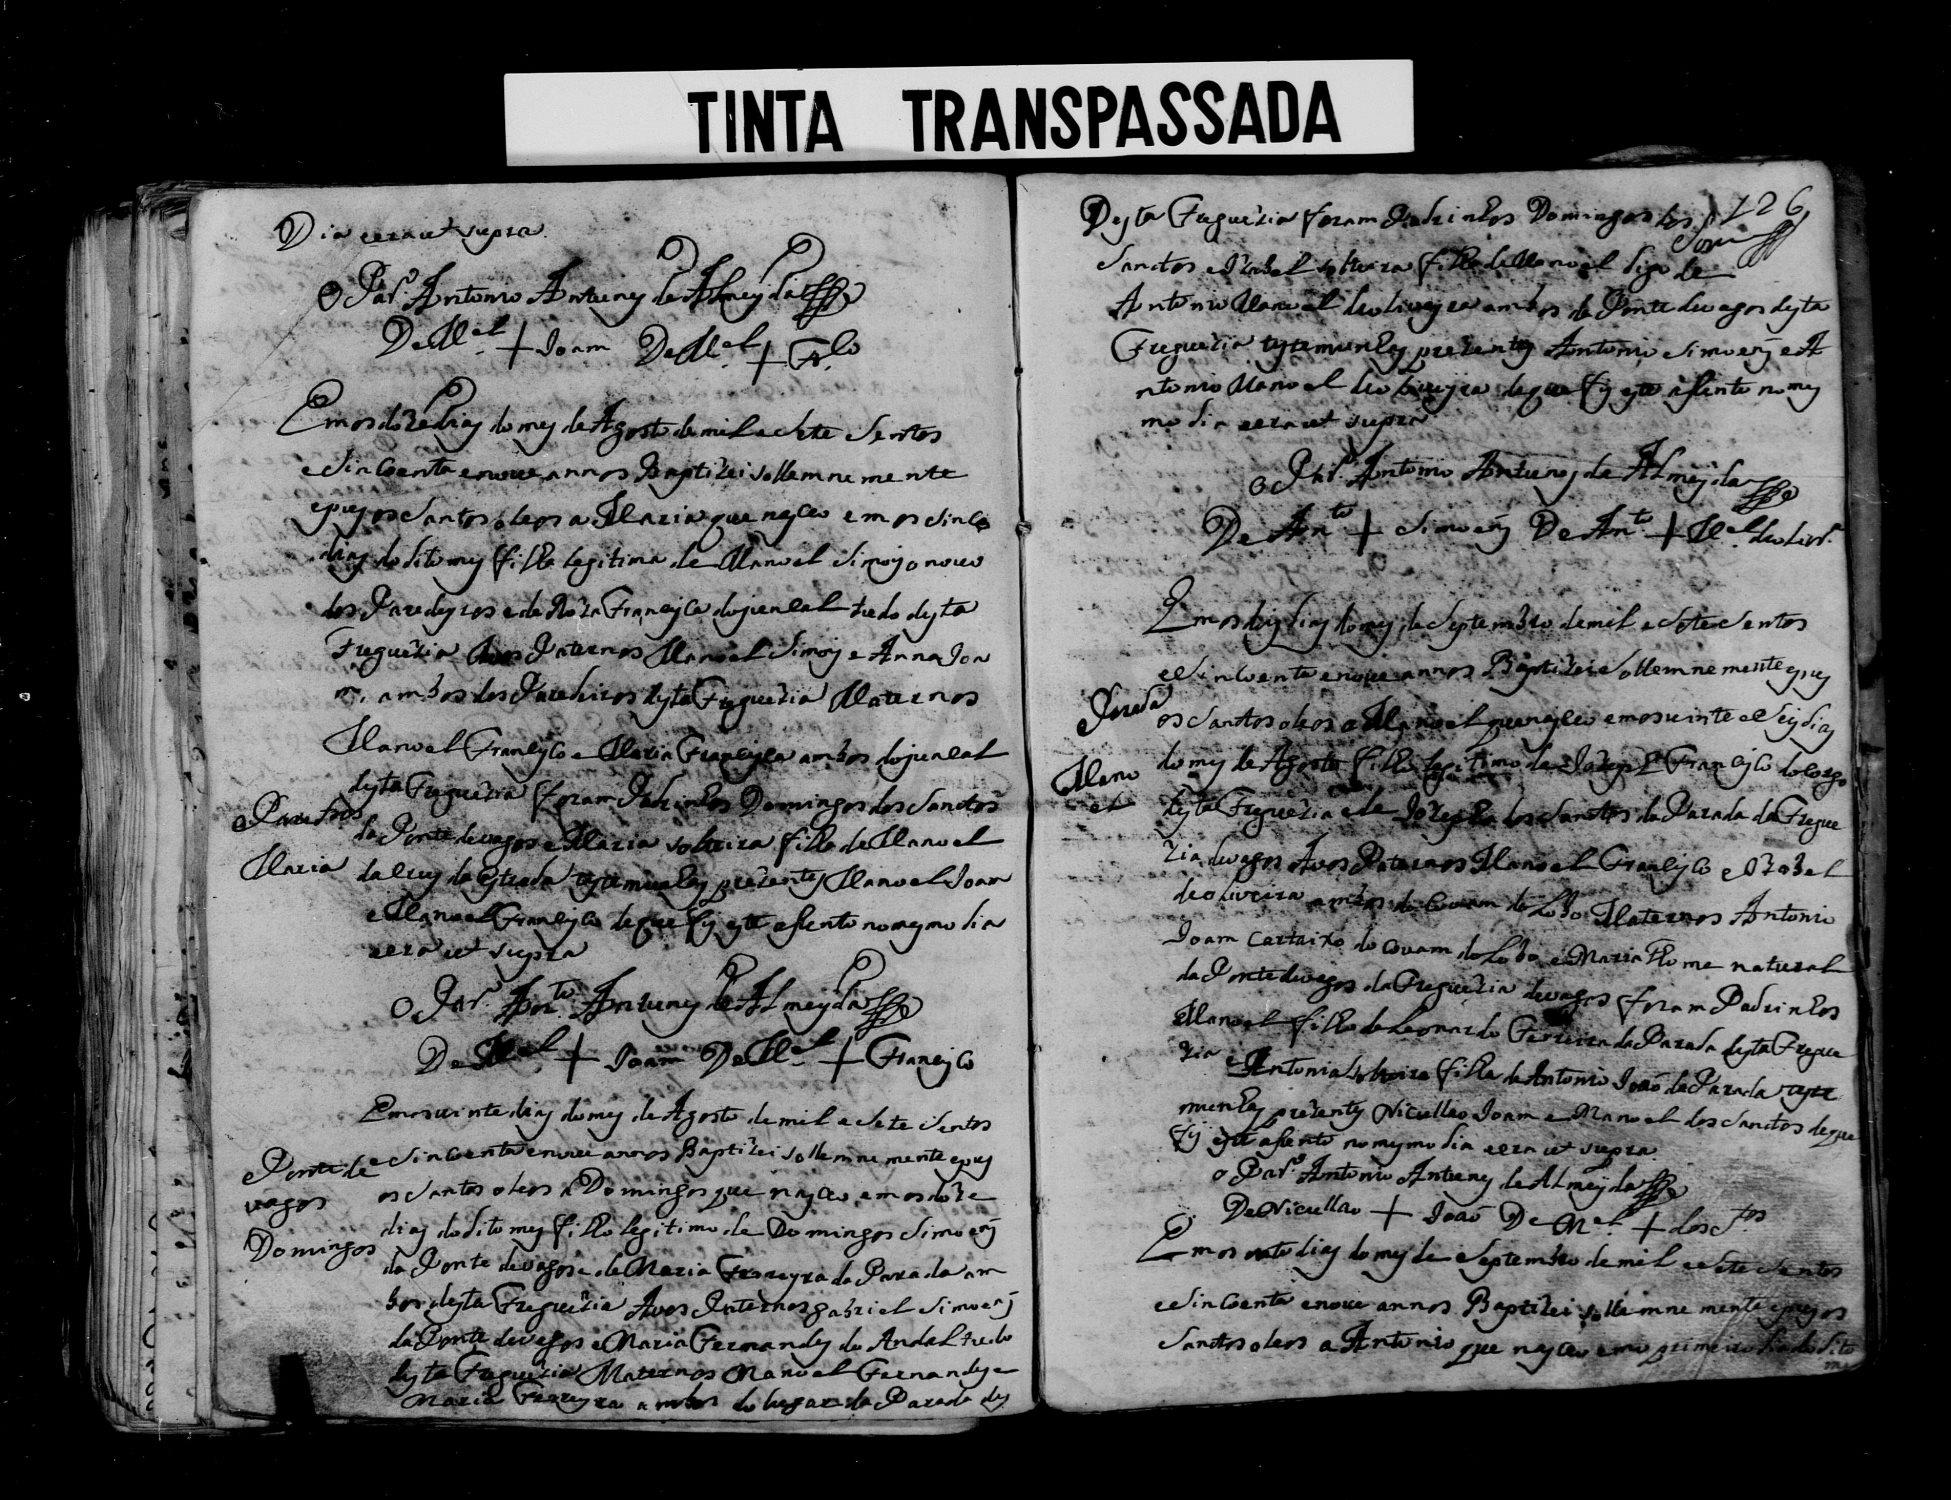 TINTA TRANSPASSADA
Dia eera ut supra
O Par.º Antonio Antunes de Almeyda
De M.el + Joam De M.el + Fr.co
Emos doze dias do mes de Agosto de mil e Sete Sentos
e Sincoenta e nove annos Baptizei sollemnemente
e pus os Santos oleos a Maria que nasceo emos Sinco
dias do dito mes filha legitima de Manoel Simois o novo
dos Paredeyros e de Roza Francisca do juncal tudo desta
Freguezia Avos Paternos Manoel Simois e Anna Joa
m ambos dos Paredeiros desta Freguezia Maternos
Manoel Francisco e Maria Francisca ambos do juncal
desta Freguezia foram Padrinhos Domingos dos Sanctos
da Ponte de vagos e Maria solteira filha de Manoel
da Crus da estrada testemunhas prezentes Manoel Joam
e Manoel Francisco de que fis este assento no mesmo dia
eera ut supra
Maria
O Par.º Ant.º Antunes de Almeyda
De M.el + Joam De M.el + Francisco
Emos vinte dias do mes de Agosto de mil e Sete Sentos
e Sincoenta e nove annos Baptizei sollemnemente e pus
os Santos oleos a Domingos que nasceo emos doze
dias do dito mes filho legitimo de Domingos Simoens
da Ponte de vagos e de Maria Ferreyra da Parada am
bos desta Freguezia Avos Paternos gabriel Simoens
da Ponte de vagos e Maria Fernandes do Andal tudo
desta Freguezia Maternos Manoel Fernandes e
Maria Ferreyra ambos do lugar da Parada des
Ponte de
vagos
Domingos
126
Desta Freguezia foram Padrinhos Domingos dos
Sanctos e Izabel solteira filha de Manoel digo de
Antonio Manoel de oliveyra ambos da Ponte de vagos desta
Freguezia testemunhas prezentes Antonio Simoens e A
ntonio Manoel de oliveyra de que fis este assento no mes
mo dia eera ut supra
O Par.º Antonio Antunes de Almeyda
De Ant.º + Simoens De Ant.º + M.el de oliv.ra
Emos des dias do mes de Septembro de mil e Sete Sentos
e Sincoenta e nove annos Baptizei sollemnemente e pus
os Sanctos oleos a Manoel que nasceo emos vinte e Seis dias
do mes de Agosto filho legitimo de Jozeph Francisco do
desta Freguezia e de Jozepha dos Sanctos da Parada da Fregue
zia de vagos Avos Paternos Manoel Francisco e Izabel
de oliveira ambos do Covam do Lobo Maternos Antonio
Joam Cartaixo do Covam do Lobo e Maria Thome natural
da Ponte de vagos da Freguezia de vagos foram Padrinhos
Manoel filho de Leonardo Ferreira da Parada desta Fregue
zia e Antonia solteira filha de Antonio Joaõ da Parada teste
munhas prezentes Nicullao Joam e Manoel dos Sanctos de que
fis este assento no mesmo dia eera ut supra
Parada
Mano
el
O Par.º Antonio Antunes de Almeyda
De Nicullao + Joaõ De M.el + dos S.tos
Emos outo dias do mes de Septembro de mil e Sete Sentos
e Sincoenta e nove annos Baptizei sollemnemente e pus os
Sanctos oleos a Antonio que nasceo emo primeiro dia do dito
me